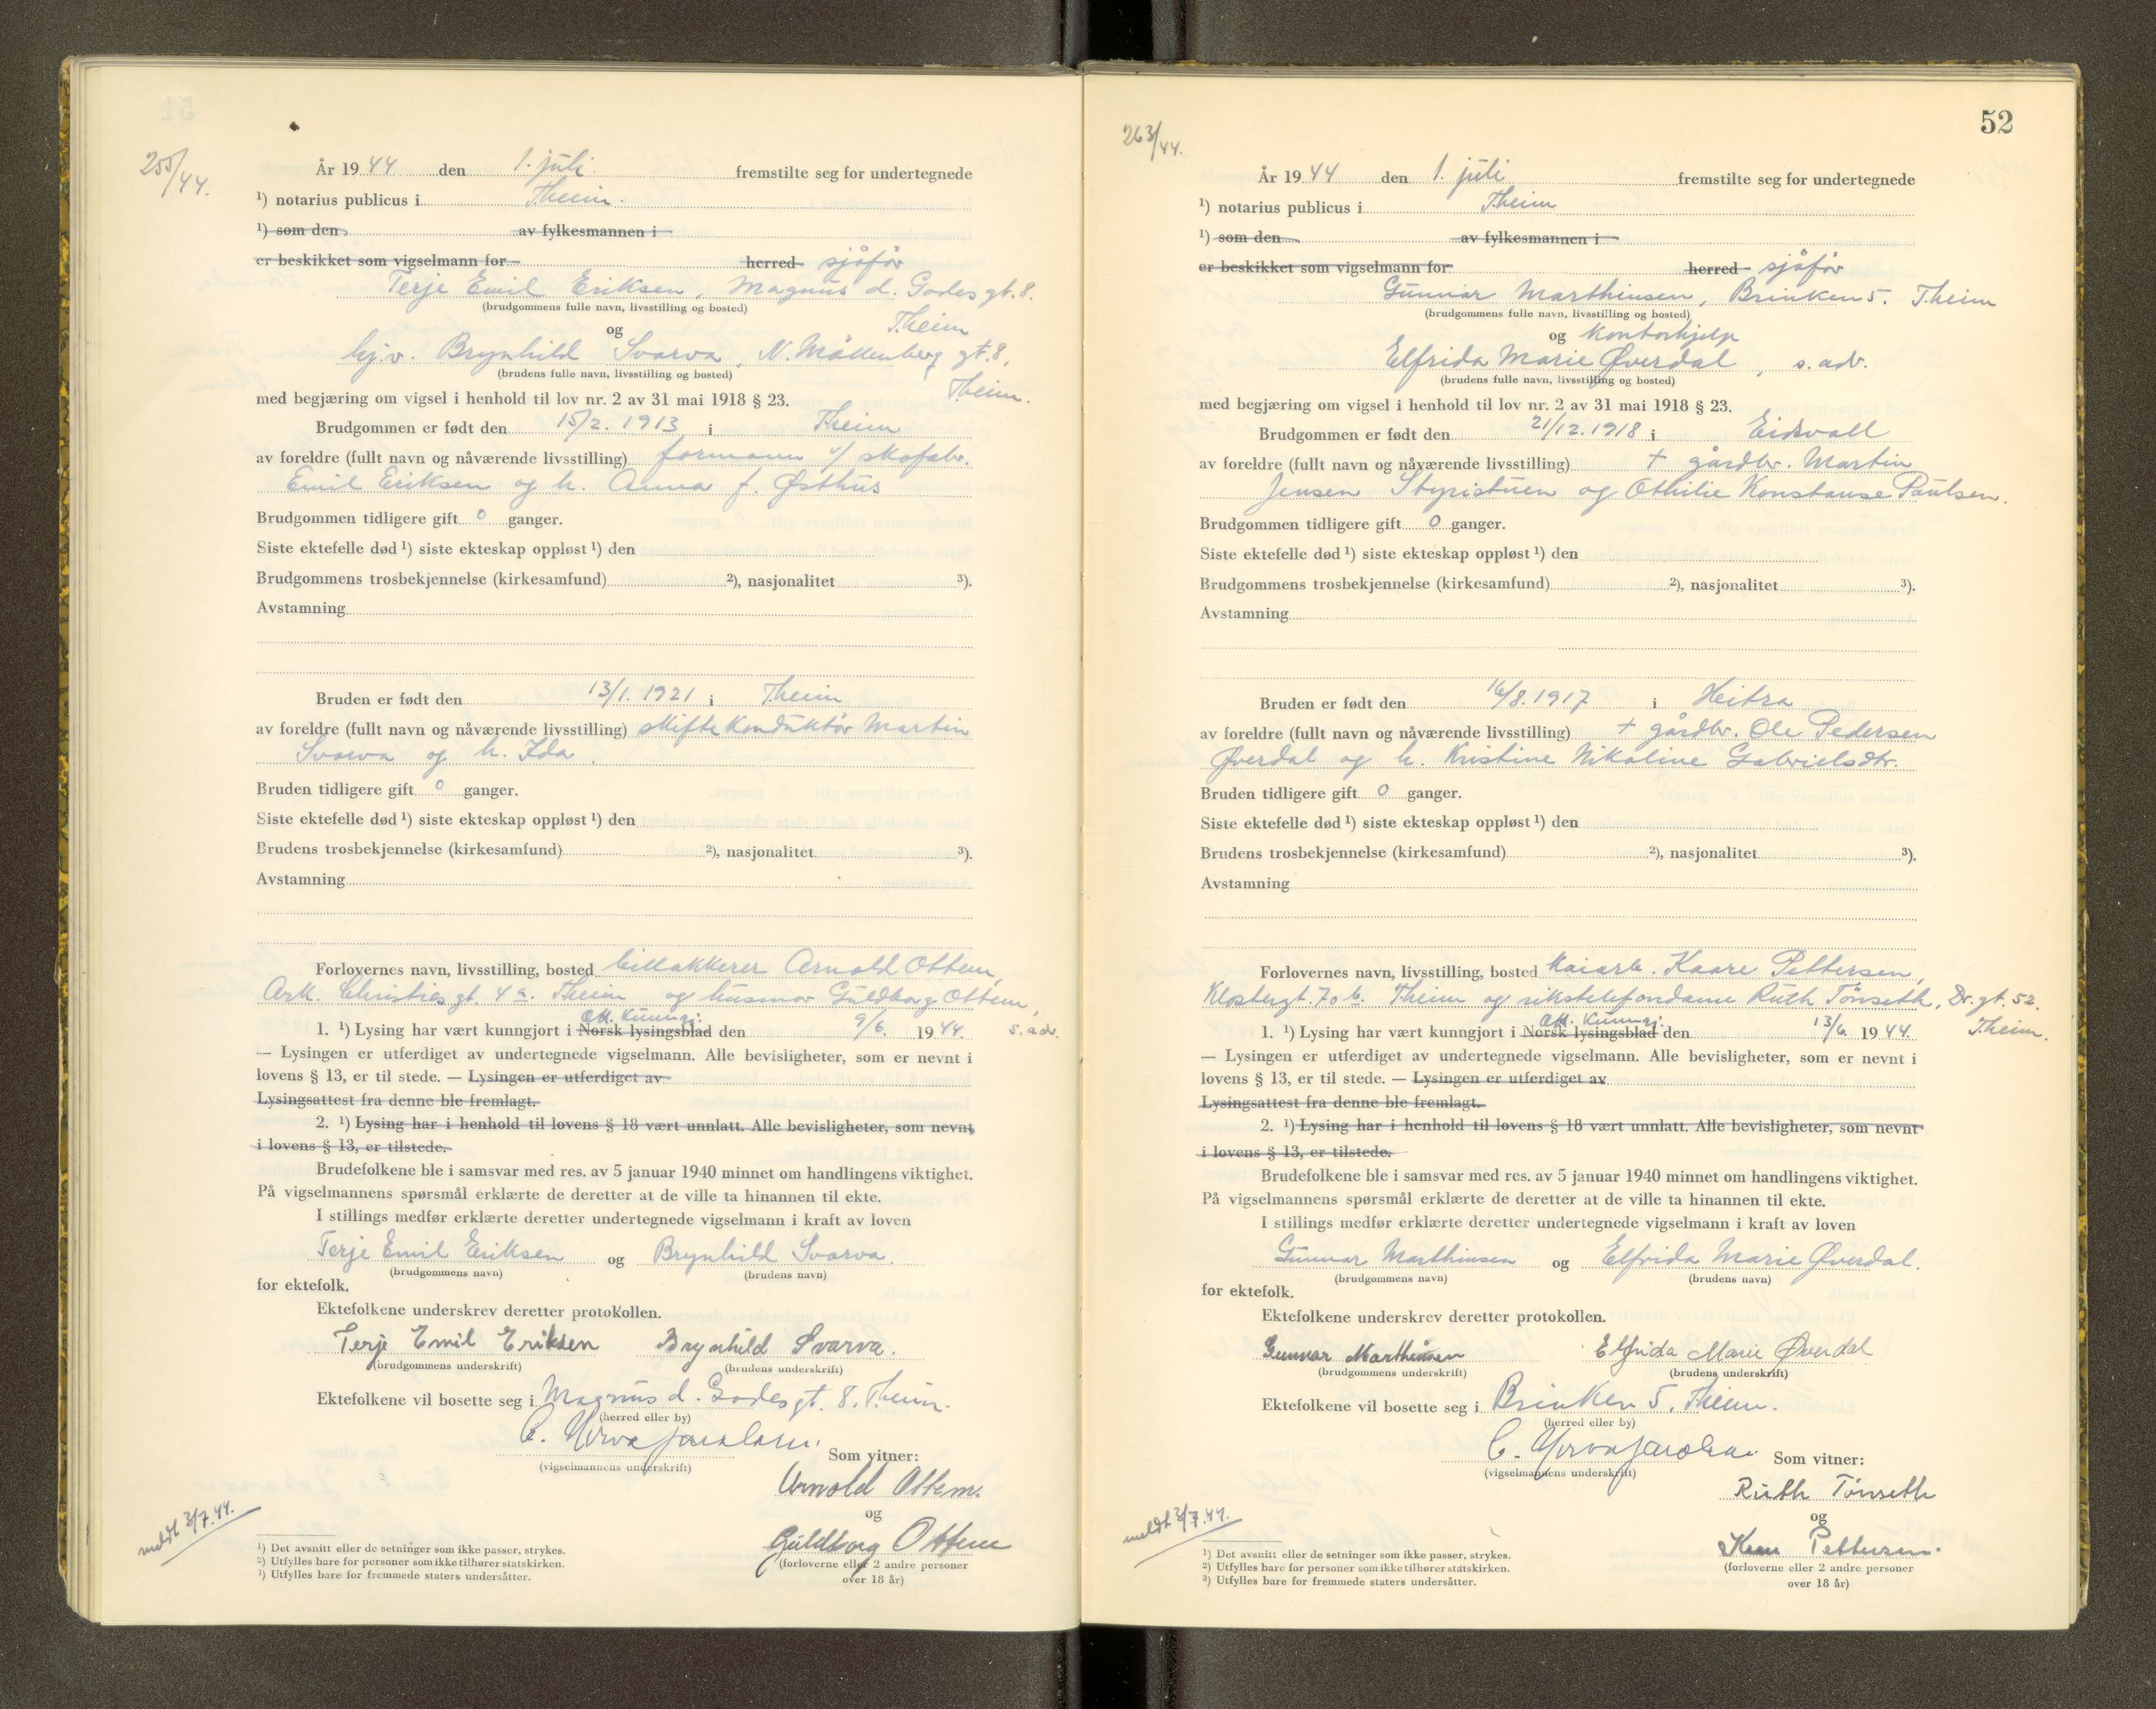 255/44.
År 1944 den 1. juli fremstilte seg for undertegnede
¹) notarius publicus i Theim.
¹) som den av fylkesmannen i
er beskikket som vigselmann for herred sjåfør
Terje Emil Eriksen, Magnus d. Godes gt. 8.
(brudgommens fulle navn, livsstilling og bosted)
Theim
og
hj.v. Brynhild Svarva, N. Møllenberg gt. 8,
(brudens fulle navn, livsstilling og bosted)
Theim.
med begjæring om vigsel i henhold til lov nr. 2 av 31 mai 1918 § 23.
Brudgommen er født den 15/2. 1913 i Theim
av foreldre (fullt navn og nåværende livsstilling) formann v/ skofabr.
Emil Eriksen og h. Anna f. Østhus
Brudgommen tidligere gift 0 ganger.
Siste ektefelle død ¹) siste ekteskap oppløst ¹) den
Brudgommens trosbekjennelse (kirkesamfund) ²), nasjonalitet ³).
Avstamning
Bruden er født den 13/1. 1921 i Theim
av foreldre (fullt navn og nåværende livsstilling) skiftekonduktør Martin
Svarva og h. Ida.
Bruden tidligere gift 0 ganger.
Siste ektefelle død ¹) siste ekteskap oppløst ¹) den
Brudens trosbekjennelse (kirkesamfund) ²), nasjonalitet ³).
Avstamning
Forlovernes navn, livsstilling, bosted billakkerer Arnold Ottem,
Ark. Christies gt. 4 a. Theim og husmor Guldborg Ottem,
s. adr.
Off. Kunngj.
1. ¹) Lysing har vært kunngjort i Norsk lysingsblad den 9/6. 1944.
— Lysingen er utferdiget av undertegnede vigselmann. Alle bevisligheter, som er nevnt i
lovens § 13, er til stede. — Lysingen er utferdiget av
Lysingsattest fra denne ble fremlagt.
2. ¹) Lysing har i henhold til lovens § 18 vært unnlatt. Alle bevisligheter, som nevnt
i lovens § 13, er tilstede.
Brudefolkene ble i samsvar med res. av 5 januar 1940 minnet om handlingens viktighet.
På vigselmannens spørsmål erklærte de deretter at de ville ta hinannen til ekte.
I stillings medfør erklærte deretter undertegnede vigselmann i kraft av loven
Terje Emil Eriksen og Brynhild Svarva.
(brudgommens navn) (brudens navn)
for ektefolk.
Ektefolkene underskrev deretter protokollen.
Terje Emil Eriksen Brynhild Svarva.
(brudgommens underskrift) (brudens underskrift)
Ektefolkene vil bosette seg i Magnus d. Godes gt. 8. Theim.
(herred eller by)
(vigselmannens underskrift)
Som vitner:
Arnold Ottem.
og
Guldborg Ottem
(forloverne eller 2 andre personer
over 18 år)
meldt 3/7.44.
¹) Det avsnitt eller de setninger som ikke passer, strykes.
²) Utfylles bare for personer som ikke tilhører statskirken.
³) Utfylles bare for fremmede staters undersåtter.
52
263/44.
År 1944 den 1. juli fremstilte seg for undertegnede
¹) notarius publicus i Theim
¹) som den av fylkesmannen i
er beskikket som vigselmann for herred sjåfør
Gunnar Marthinsen, Brinken 5. Theim
(brudgommens fulle navn, livsstilling og bosted)
og kontorhjelp
Elfrida Marie Øverdal, s. adr.
(brudens fulle navn, livsstilling og bosted)
med begjæring om vigsel i henhold til lov nr. 2 av 31 mai 1918 § 23.
Brudgommen er født den 21/12. 1918 i Eidsvoll
av foreldre (fullt navn og nåværende livsstilling) + gårdbr. Martin
Jensen Styristuen og Othilie Konstanse Paulsen.
Brudgommen tidligere gift 0 ganger.
Siste ektefelle død ¹) siste ekteskap oppløst ¹) den
Brudgommens trosbekjennelse (kirkesamfund) ²), nasjonalitet ³).
Avstamning
Bruden er født den 16/8. 1917 i Heitra
av foreldre (fullt navn og nåværende livsstilling) + gårdbr. Ole Pedersen
Øverdal og h. Kristine Nikoline Gabrielsdtr.
Bruden tidligere gift 0 ganger.
Siste ektefelle død ¹) siste ekteskap oppløst ¹) den
Brudens trosbekjennelse (kirkesamfund) ²), nasjonalitet ³).
Avstamning
Forlovernes navn, livsstilling, bosted kaiarb. Kaare Pettersen,
Klostergt. 70 b. Theim og rikstelefondame Ruth Tønseth, Dr. gt. 52.
Theim.
Off. Kunngj.
1. ¹) Lysing har vært kunngjort i Norsk lysingsblad den 13/6. 1944.
— Lysingen er utferdiget av undertegnede vigselmann. Alle bevisligheter, som er nevnt i
lovens § 13, er til stede. — Lysingen er utferdiget av
Lysingsattest fra denne ble fremlagt.
2. ¹) Lysing har i henhold til lovens § 18 vært unnlatt. Alle bevisligheter, som nevnt
i lovens § 13, er tilstede.
Brudefolkene ble i samsvar med res. av 5 januar 1940 minnet om handlingens viktighet.
På vigselmannens spørsmål erklærte de deretter at de ville ta hinannen til ekte.
I stillings medfør erklærte deretter undertegnede vigselmann i kraft av loven
Gunnar Marthinsen og Elfrida Marie Øverdal.
(brudgommens navn) (brudens navn)
for ektefolk.
Ektefolkene underskrev deretter protokollen.
Gunnar Marthinsen Elfrida Marie Øverdal
(brudgommens underskrift) (brudens underskrift)
Ektefolkene vil bosette seg i Brinken 5. Theim.
(herred eller by)
(vigselmannens underskrift)
Som vitner:
Ruth Tønseth
og
Pettersen.
(forloverne eller 2 andre personer
over 18 år)
meldt 3/7.44.
¹) Det avsnitt eller de setninger som ikke passer, strykes.
²) Utfylles bare for personer som ikke tilhører statskirken.
³) Utfylles bare for fremmede staters undersåtter.